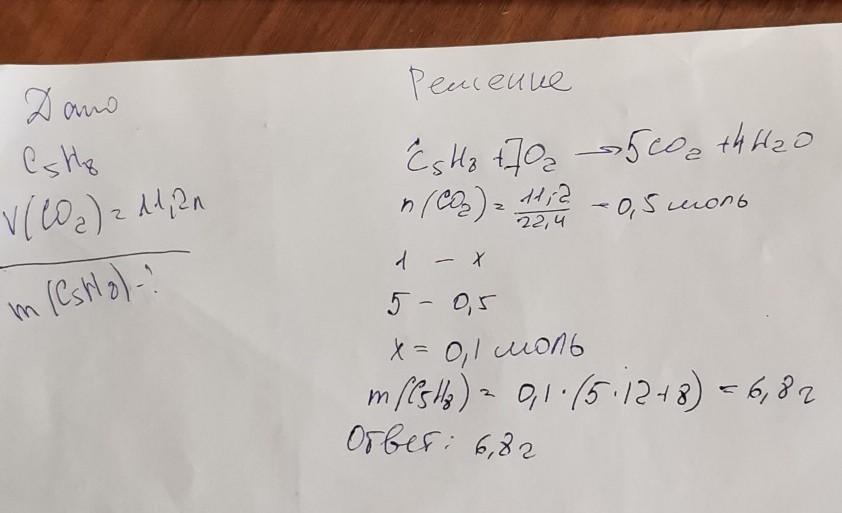 Дано
C5H8
V(CO2) = 11,2л
m(C5H8) - ?
Решение
C5H8 + 7O2 → 5CO2 + 4H2O
n(CO2) = 11,2/22,4 = 0,5 моль
1 - x
5 - 0,5
x = 0,1 моль
m(C5H8) = 0,1·(5·12+8) = 6,8г
Ответ: 6,8г